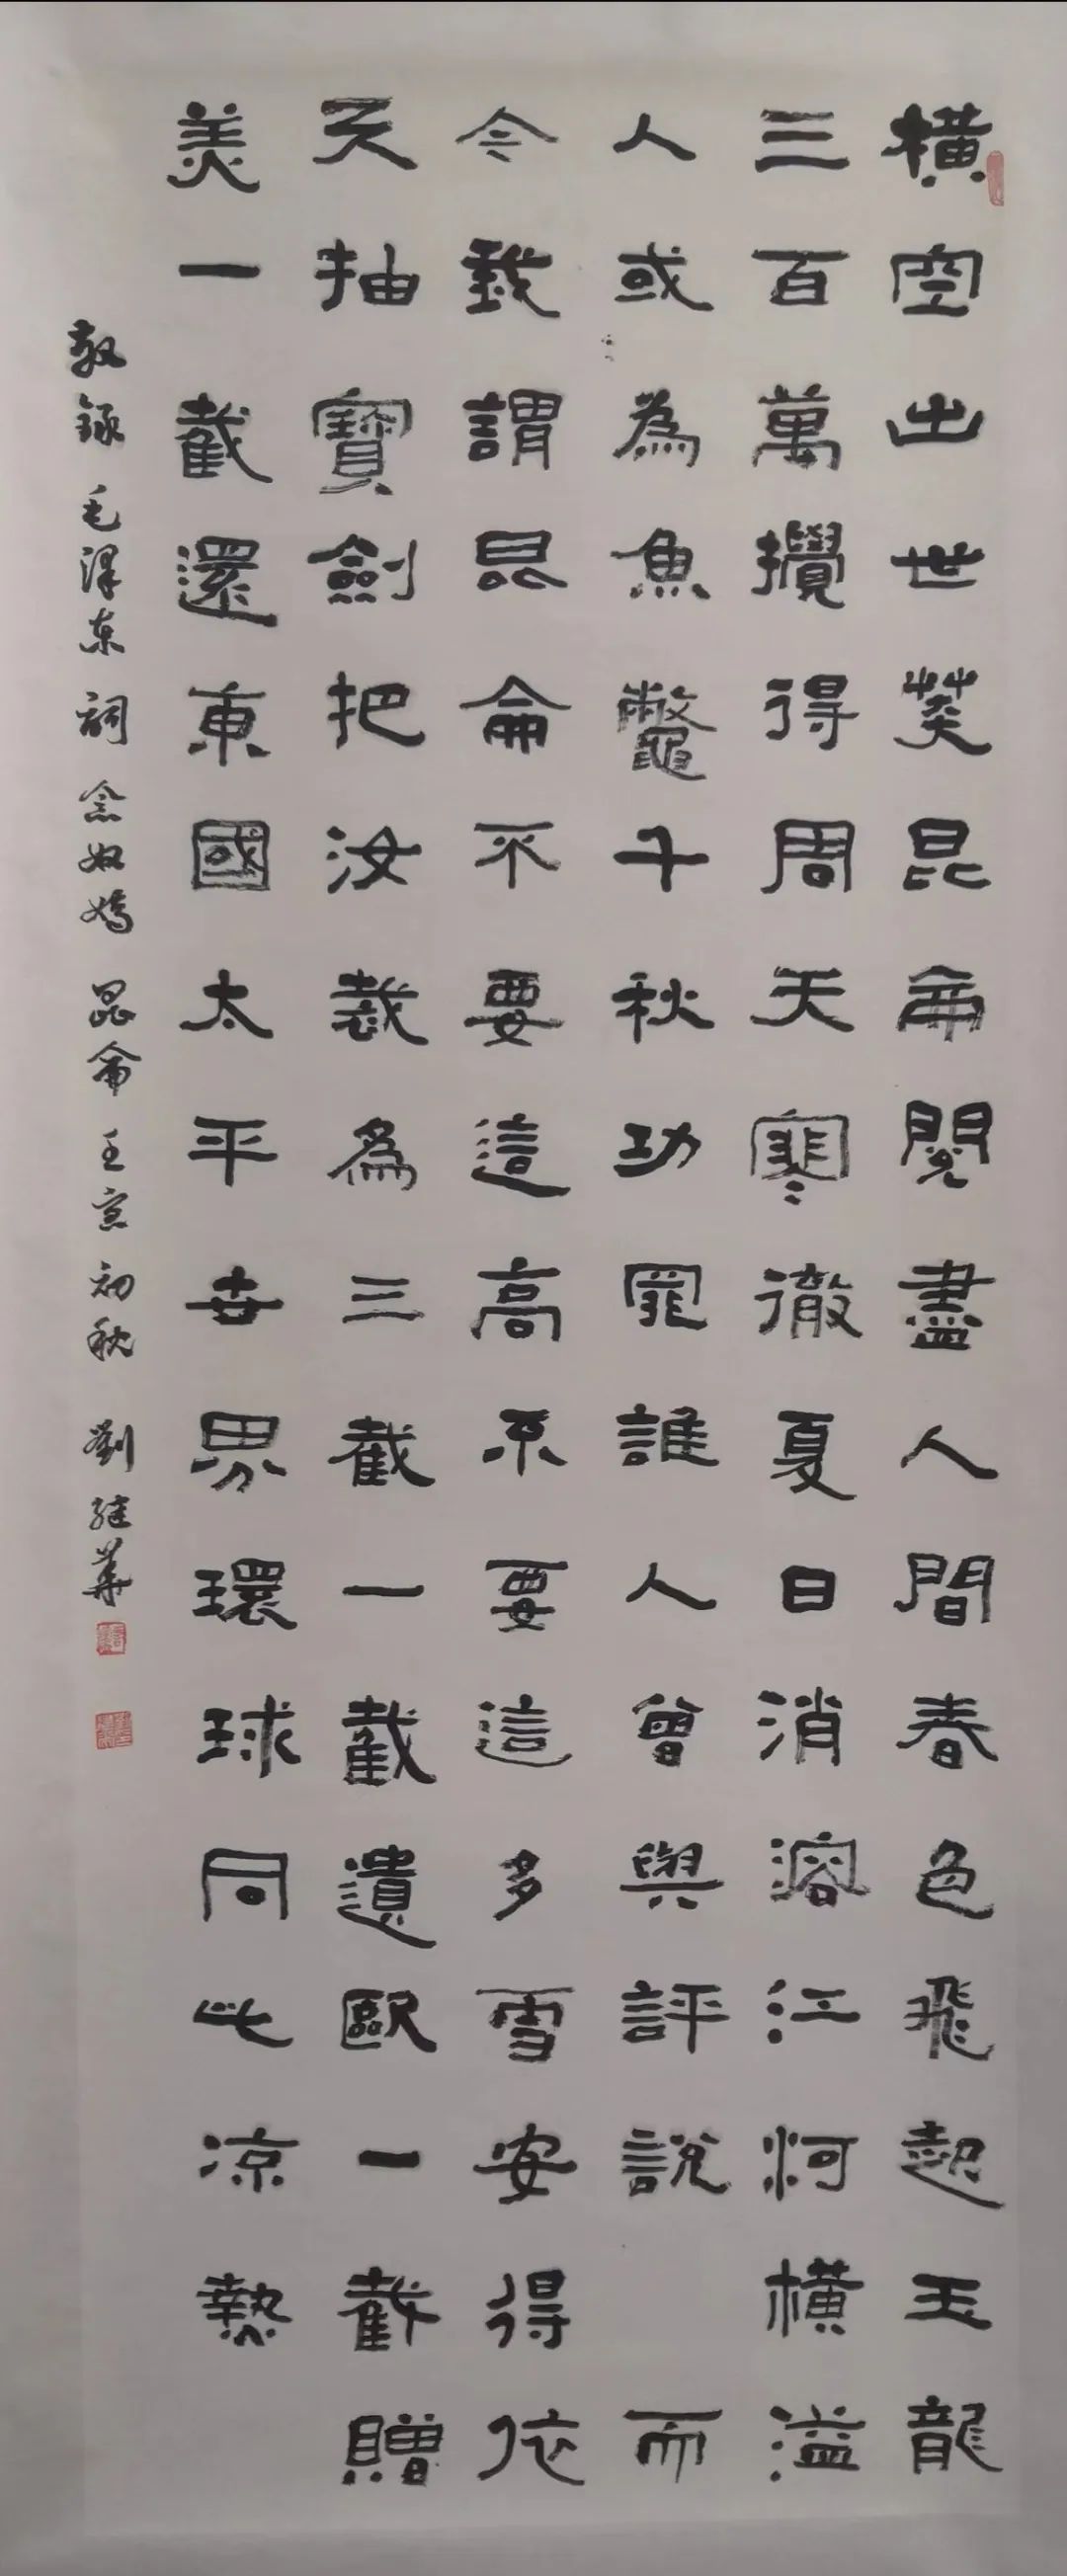 橫空出世莽昆侖閱盡人間春色飛起玉龍
三百萬攪得周天寒徹夏日消溶江河橫溢
人或為魚鼈千秋功罪誰人曾與評說 而
今我謂昆侖不要這高不要這多雪安得依
天抽寶劍把汝裁爲三截一截遺歐一截贈
美一截還東國太平世界環球同此凉熱
敬錄 毛泽东 詞 念奴嬌 昆侖 壬寅初秋 劉继華